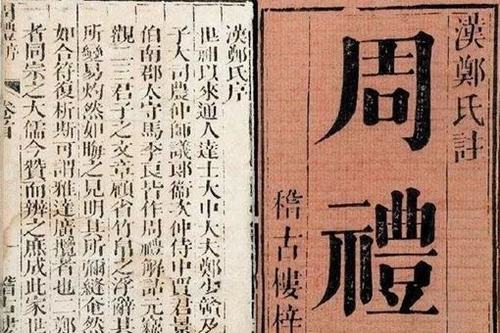 漢鄭氏註
周禮
稽古樓梓
漢鄭氏序
世祖以來通人達士大中大夫鄭少贛及
子大司農仲師議郎衛次仲侍中賈君景
伯南郡太守馬季長皆作周禮解詁元竊
觀二三君子之文章顧省竹帛之浮辭其
所變易灼然如晦之見明其所彌縫奄然
如合符復析斯可謂雅達廣攬者也二鄭
者同宗之大儒今贊而辨之庶成此家世
卷首
一
稽古